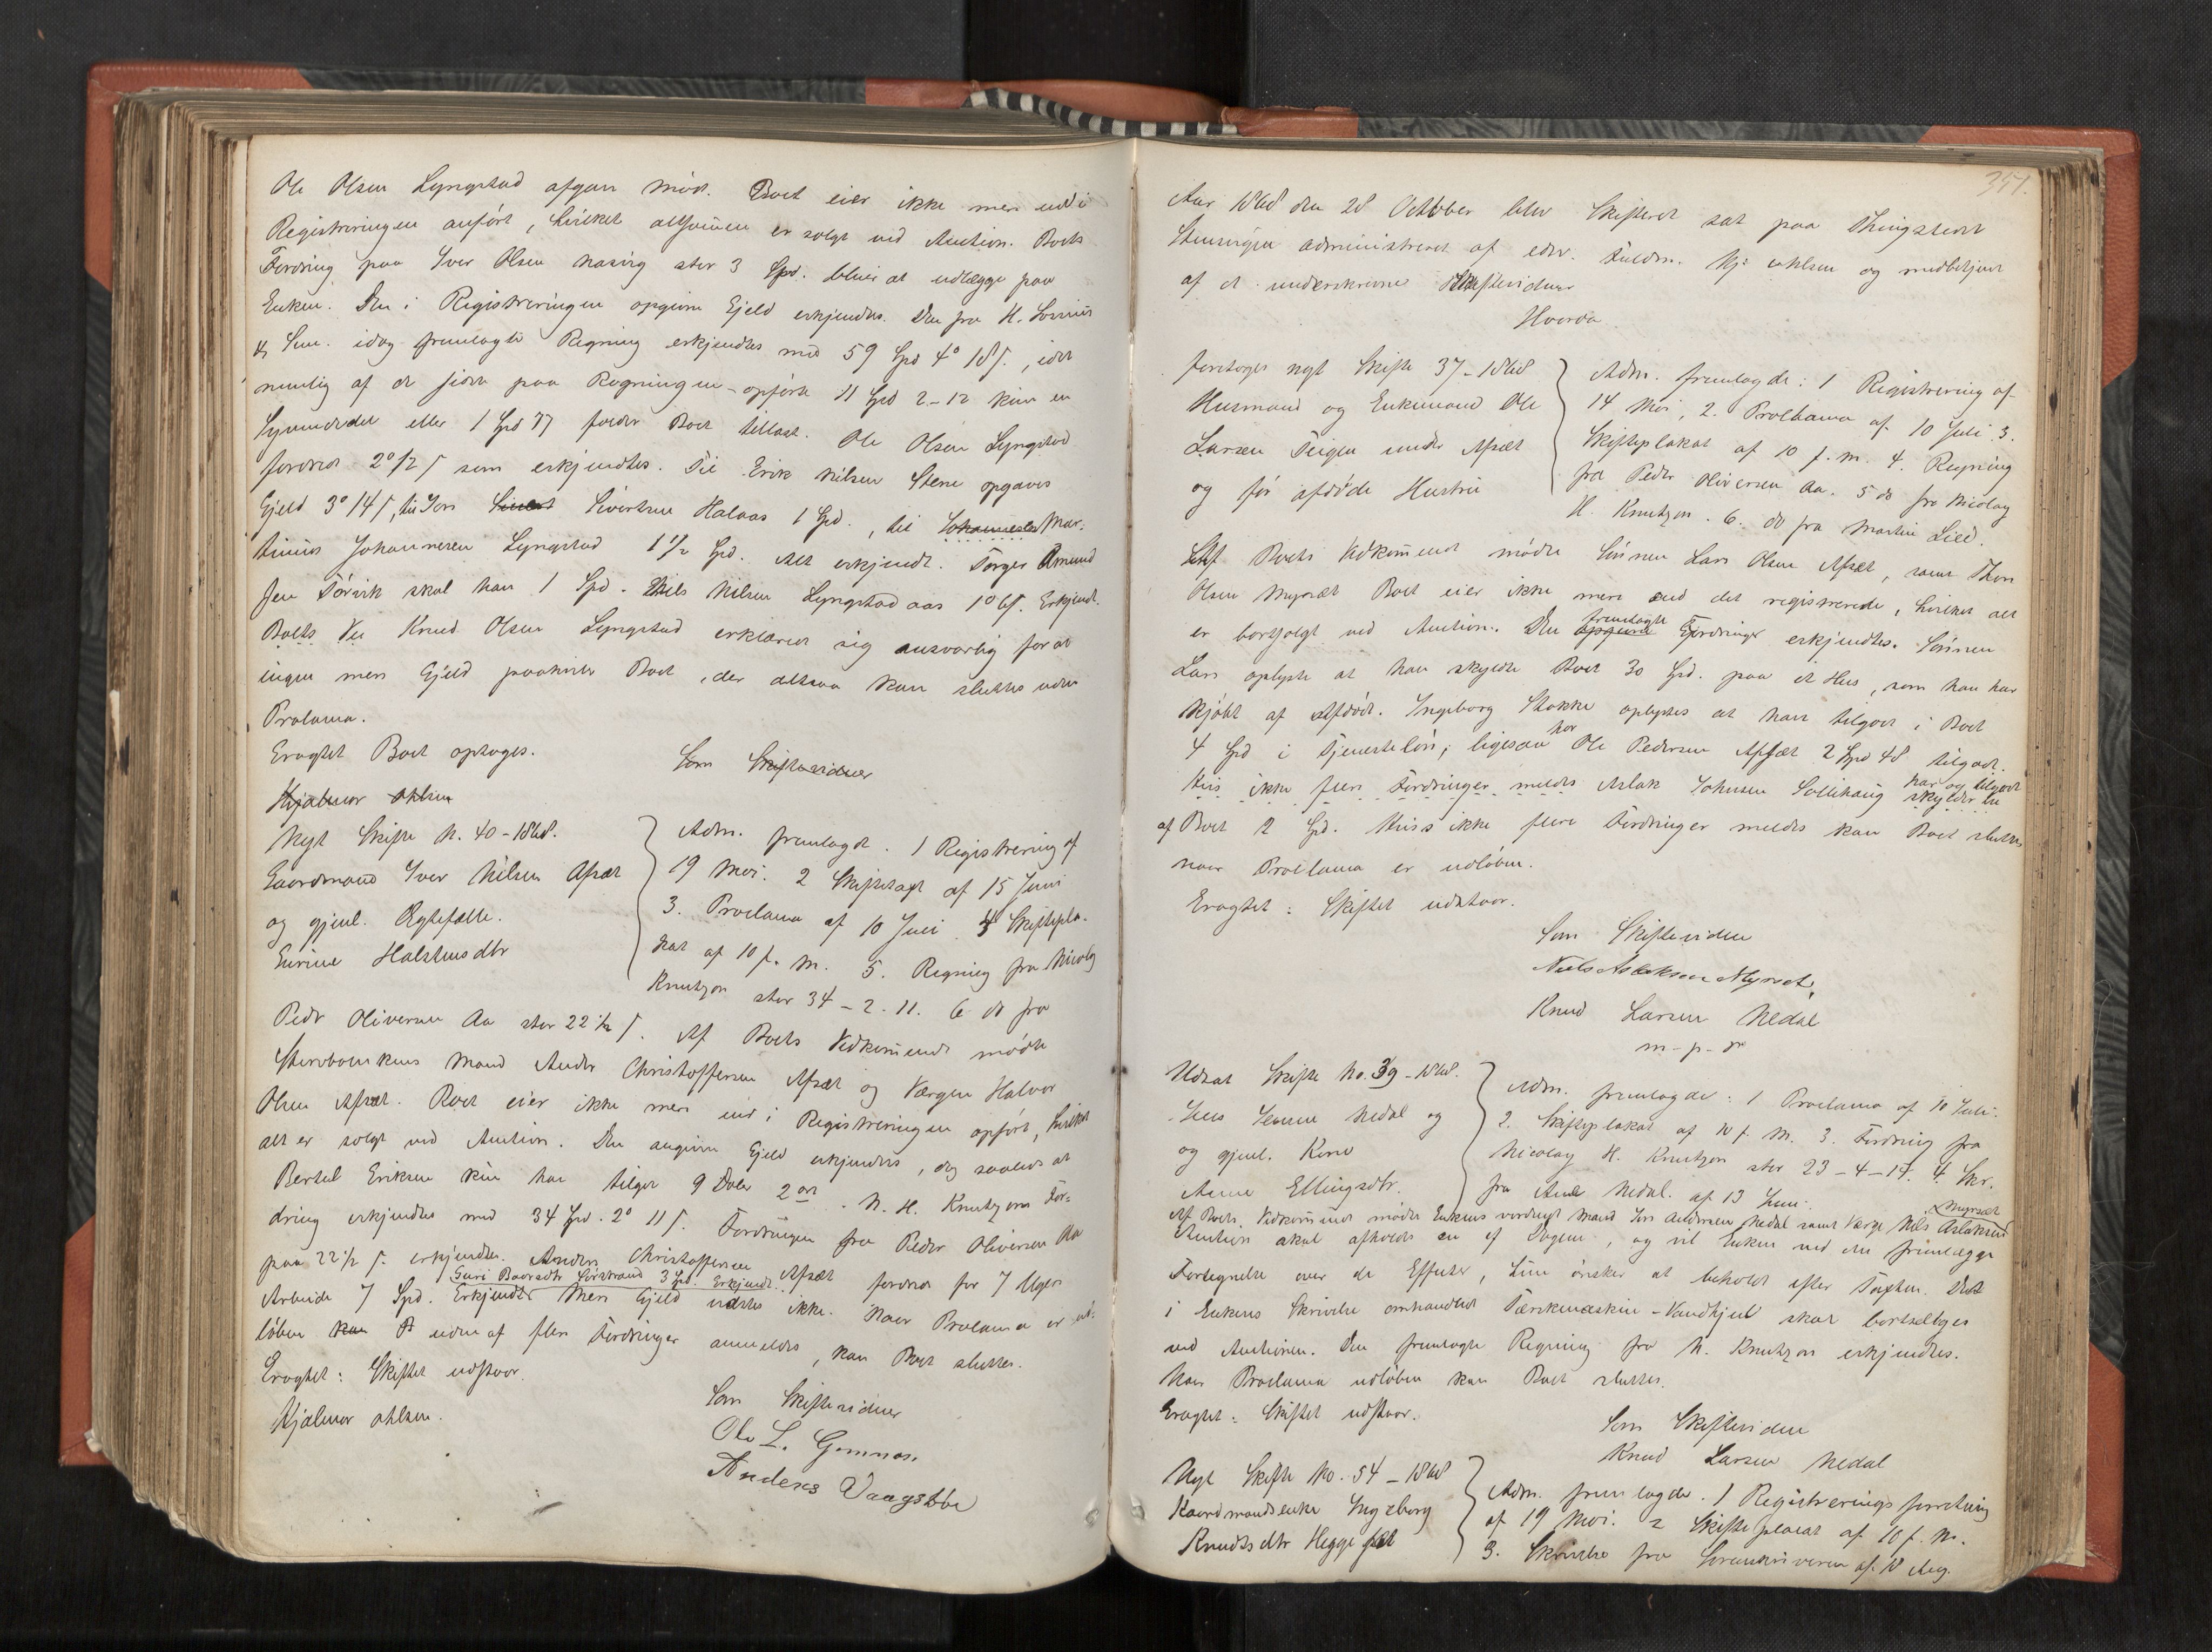 Ole Olsen Lyngstad afgav Møde. Boet eier ikke mere end i
Registreringen anført, hvilket altsammen er solgt ved Auction. Boets
Fordring paa Iver Olsen stor 3 Spd. bliver at udlægge paa
Enken. Den i Registreringen opgivne Gjeld erkjendtes. Den fra H.
& Søn. idag fremlagte Regning erkjendtes med 59 Spd 4° 18 s., idet
nemlig af de sidste paa Regningen opførte 11 Spd 2-12 kun en
eller 1 Spd 77 Boet tillast. Ole Olsen Lyngstad
fordrer 2° 12 s som erkjendtes. Til Erik Nilsen Stene opgaves
Gjeld 3° 14 s, til Iver Sivertsen Halaas 1 Spd., til Johannes Mar-
tinus Johannesen Lyngstad 1 1/2 Spd. Alt erkjendt. Torger Amund
sen Tørvik skal have 1 Spd. Niels Nilsen Lyngstadaas 1° 6 s. Erkjendt.
Boets Ven Knud Olsen Lyngstad erklæret sig ansvarlig for at
ingen mere Gjeld paahviler Boet, der altsaa kan sluttes uden
Proclama.
Eragtet Boet optages.
Som Skiftevidner
Hjalmar Ohlsen
Nyt Skifte N. 40-1868.
Gaardmand Iver Nilsen Afsæt
og gjenl. Ægtefælle.
Guriene Halstensdtr
Adm. fremlagde. 1 Registrering af
19 Mai. 2 Skifteragt af 15 Juni
3. Proclama af 10 Juli 4 Skiftepla-
kat af 10 f. M. 5. Regning fra Nicolay
Knutzon stor 34-2-11. 6 do fra
Peder Oliversen Aa stor 22 1/2 s. Af Boets Vedkommende mødte
Stervboenkens Mand Ander Christoffersen Afsæt og Værgen Halvor
Olsen Afsæt. Boet eier ikke mere end i Registreringen opført, hvilket
alt er solgt ved Auction. Den angivne Gjeld erkjendtes, dog saaledes at
Bertel Eriksen kun har tilgode 9 Daler 2 ort. N. H. Knutzons For-
dring erkjendtes med 34 Spd. 2° 11 s. Fordringen fra Peder Oliversen Aa
paa 22 1/2 s. erkjendtes. Anders Christoffersen Afsæt fordrer for 7 Ugers
Guri Baarsdtr Sørstrand 3 Spd. Erkjendt.
Arbeide 7 Spd. Erkjendt. Mere Gjeld vidstes ikke. Naar Proclama er ud-
løben kan uden af flere Fordringer anmeldes, kan Boet sluttes.
Eragtet: Skiftet udstaar.
Hjalmar Ohlsen.
Som Skiftevidner
Ole L. Gomnæs.
Anders Vaagsbøe
351.
Aar 1868 den 28 October blev Skifteret sat paa Thingstedet
administreret af edsv. Fuldm. Hj: Ohlsen og medbetjent
af de underskrevne Skiftevidner
Hvorda
foretoges nyt Skifte 37-1868
Husmand og Enkemand Ole
Larsen Teigen under Afsæt
og før afdøde Hustru
Adm. fremlagde: 1 Registrering af
14 Mai, 2. Proclama af 10 Juli 3.
Skifteplakat af 10 f. M. 4. Regning
fra Peder Oliversen Aa. 5 do fra Nicolay
H. Knutzon. 6. do fra Martin Lied.
Af Boets Vedkommende mødte Sønnen Lars Olsen Afsæt, samt Thor
Olsen Myrsæt Boet eier ikke mere end det registrerede, hvilket alt
er bortsolgt ved Auction. Den opgivne fremlagte Fordringer erkjendtes. Sønnen
Lars oplyste at han skyldte Boet 30 Spd. paa et Hus, som han har
kjøbt af Afdøde. Ingeborg Stokke oplystes at have tilgode i Boet
4 Spd i Tjenesteløn; ligesaa har Ole Pedersen Afsæt 2 Spd 48 tilgode.
Hvis ikke flere Fordringer meldes Aslak Johnsen Sollihaug har og tilgode skylder
af Boet 2 Spd. Hviss ikke flere Fordringer meldes kan Boet sluttes
naar Proclama er udløben.
Eragtet: Skiftet udstaar.
Som Skiftevidne
Niels Aslaksen Myrset,
Knud Larsen Nedal
m-p-P
Udsat Skifte No. 39-1868.
Jens Nedal og
og gjenl. Kone
Anne Ellingsdtr.
Adm. fremlagde: 1 Proclama af 10 Juli.
2. Skifteplakat af 10 f. M. 3. Fordring fra
Nicolay H. Knutzon stor 23-4-17. 4 Skr.
fra Nedal. af 13 Juni.
Af Boets Vedkommende mødte Enkens vordende Mand Iver Andersen Nedal samt Værge Nils Aslaksen Myrsæt
Auction skal afholdes en af Dagene, og vil Enken ved den fremlægge
Fortegnelse over de Effecter, hun ønsker at beholde efter Taxten. Det
i Enkens Skrivelse omhandlede Tærskemaskin-Vandhjul skal bortsælges
ved Auctionen. Den fremlagte Regning fra N. Knutzon erkjendtes.
Naar Proclama udløben kan Boet sluttes.
Eragtet: Skiftet udstaar.
Som Skiftevidne
Knud Larsen Nedal
Nyt Skifte No. 54-1868
Gaardmandsenke Ingeborg
Knudtsdtr Heggeset
Adm. fremlagde. 1 Registreringsforretning
af 19 Mai. 2 Skifteplacat af 10 f. M.
3. Skrivelse fra Sorenskriveren af 18 Aug.